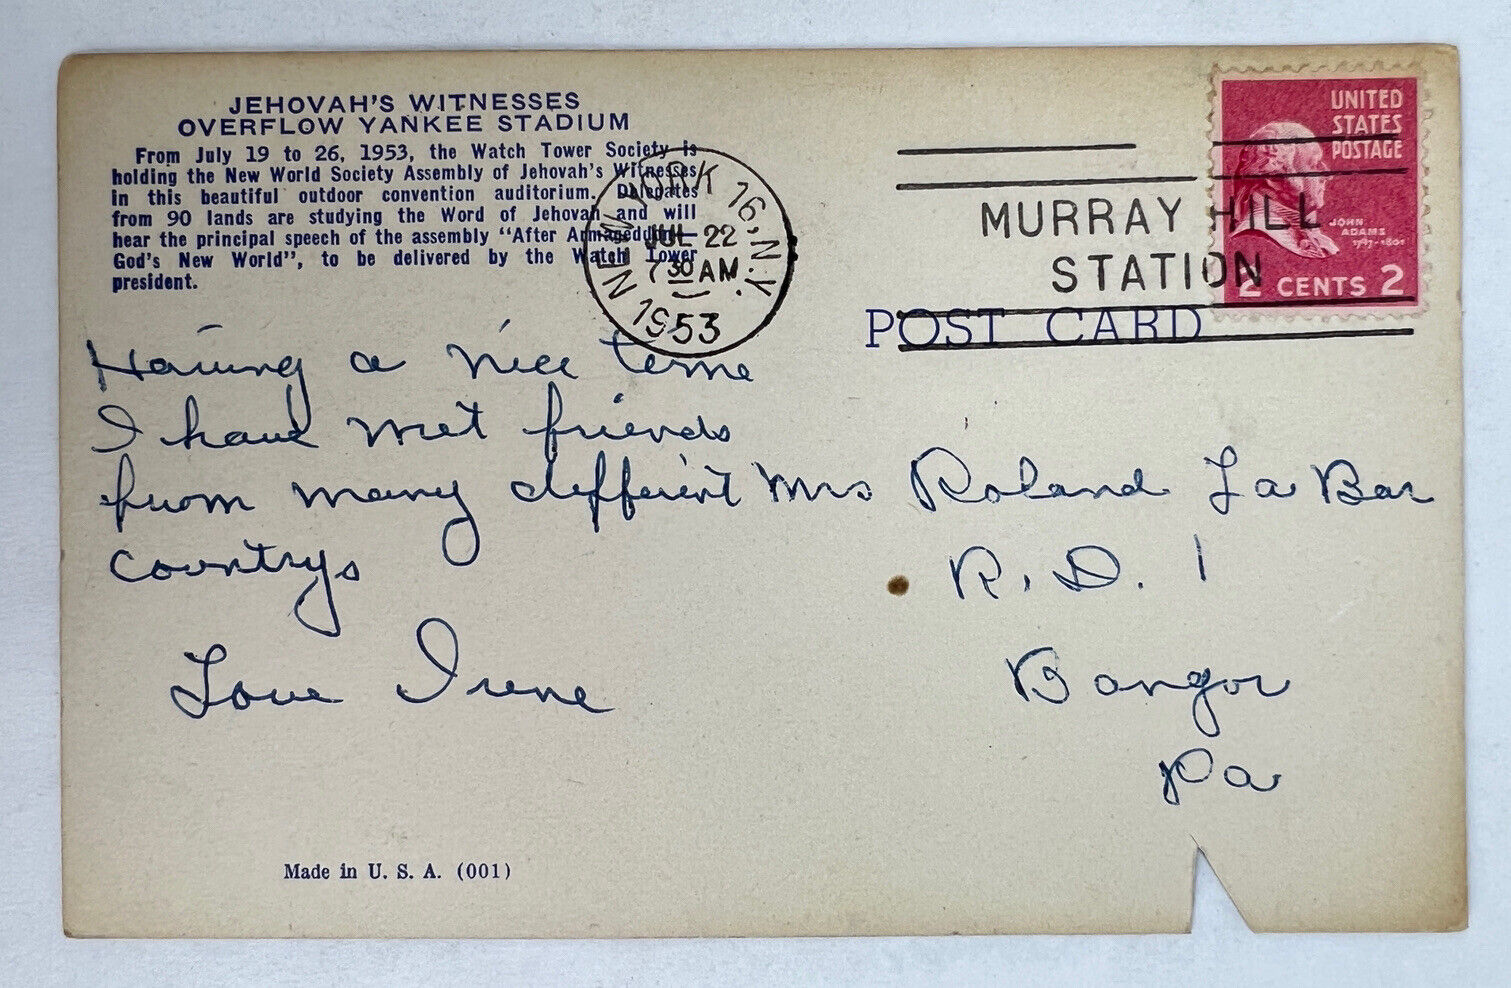 JEHOVAH'S WITNESSES
OVERFLOW YANKEE STADIUM
From July 19 to 26, 1953, the Watch Tower Society is
holding the New World Society Assembly of Jehovah's Witnesses
in this beautiful outdoor convention auditorium. Delegates
from 90 lands are studying the Word of Jehovah and will
hear the principal speech of the assembly "After Armageddon—
God's New World", to be delivered by the Watch Tower
president.
NEW YORK 16, N.Y.
JUL 22
7 30 AM
1953
MURRAY HILL
STATION
UNITED
STATES
POSTAGE
JOHN
ADAMS
1797-1801
2 CENTS 2
POST CARD
Having a nice time
I have met friends
from many different
countrys
Love Irene
Mrs Roland La Bar
R. D. 1
Bangor
Pa
Made in U. S. A. (001)